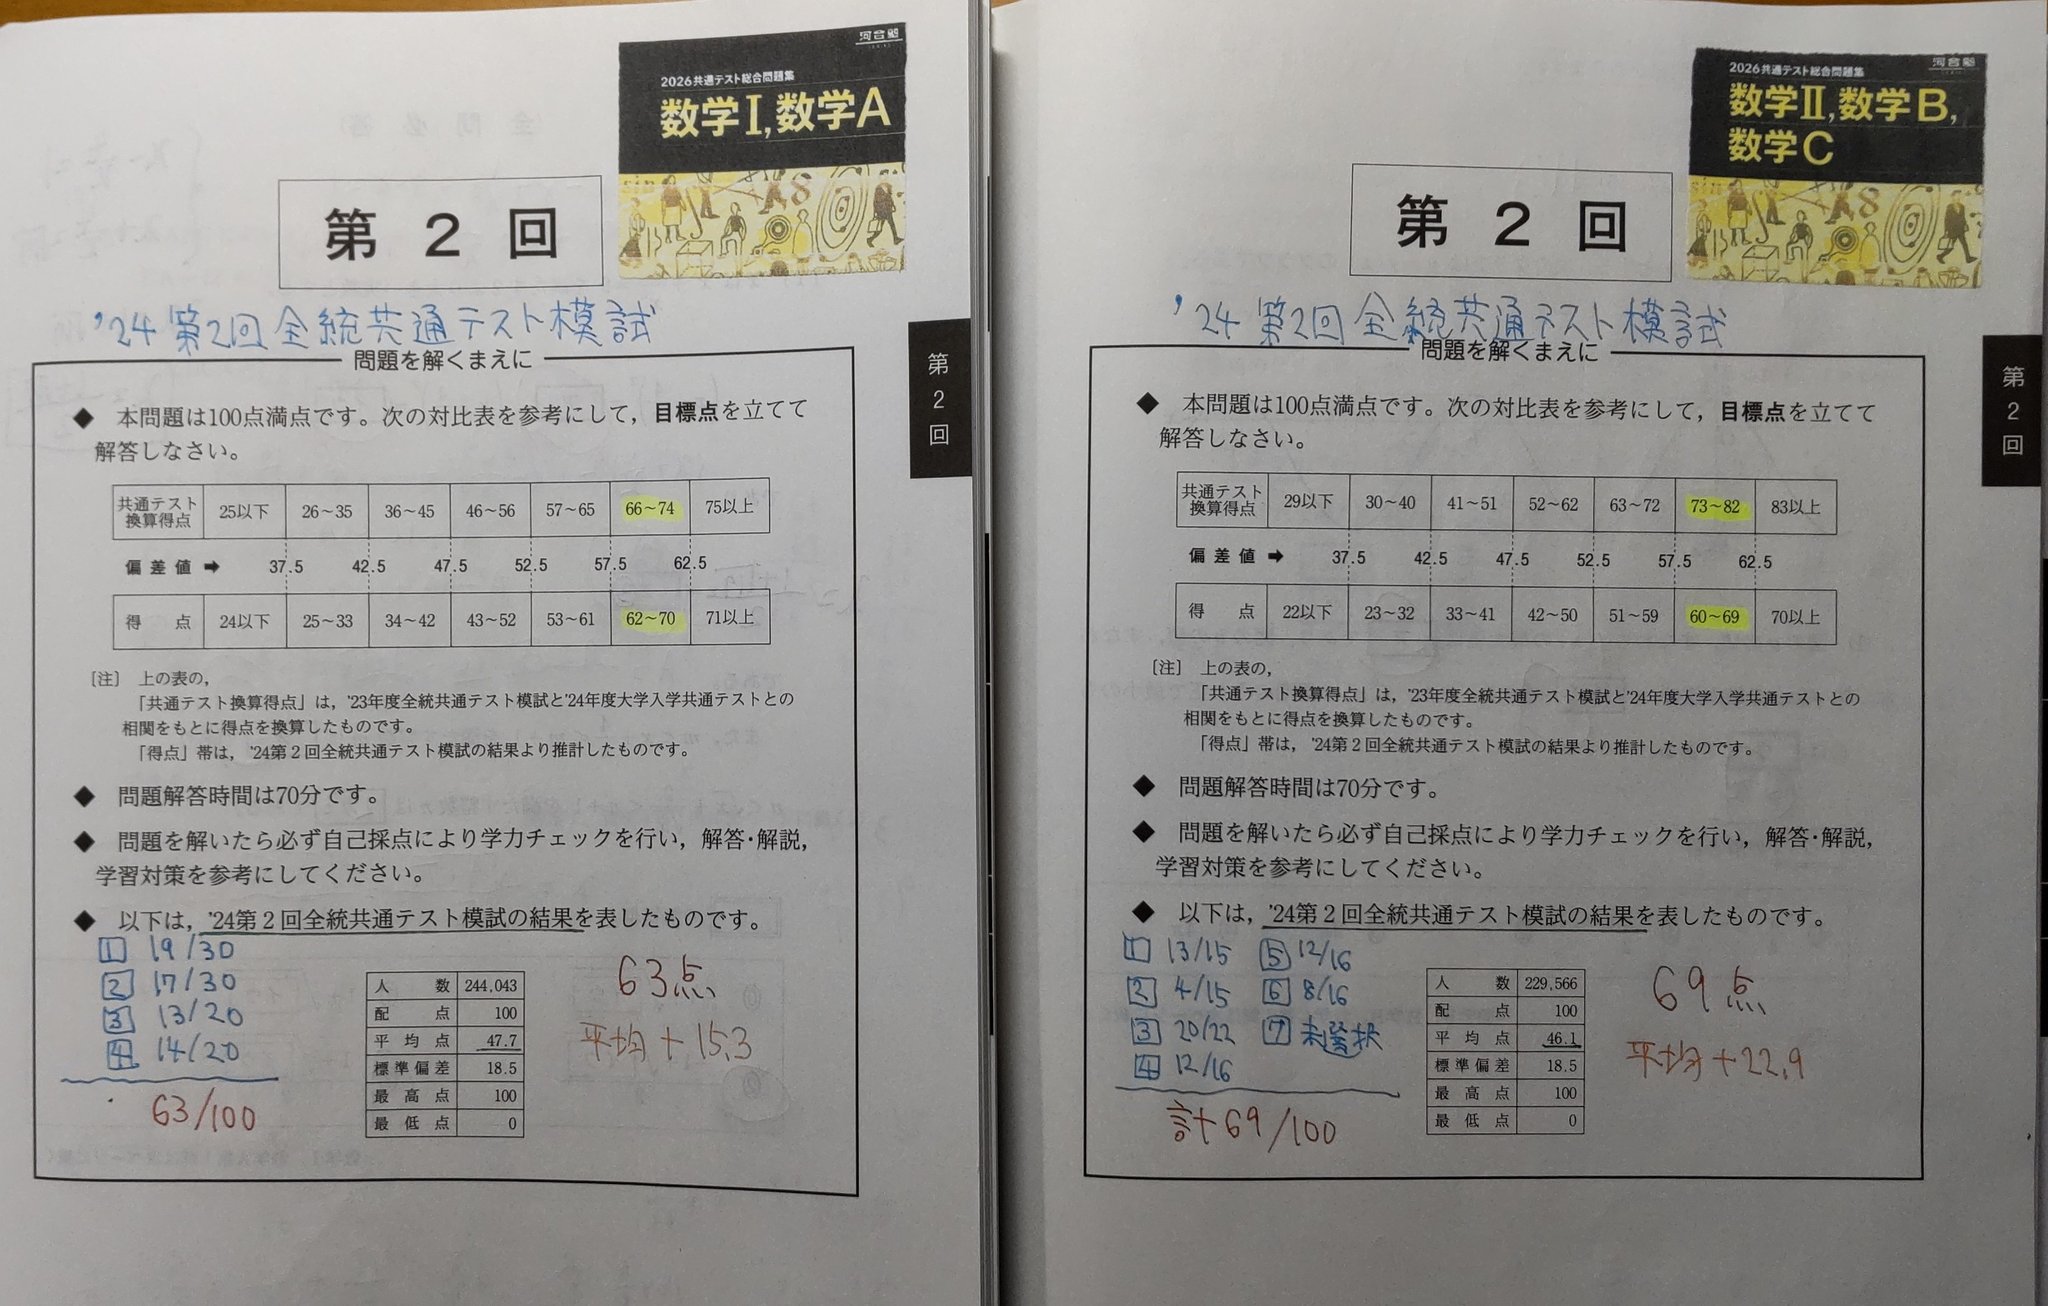 河合塾
2026共通テスト総合問題集
数学Ⅰ,数学A
第2回
'24 第2回全統共通テスト模試
問題を解くまえに
◆ 本問題は100点満点です。次の対比表を参考にして，目標点を立てて
解答しなさい。
共通テスト換算得点 25以下 26～35 36～45 46～56 57～65 66～74 75以上
偏差値 ➡ 37.5 42.5 47.5 52.5 57.5 62.5
得点 24以下 25～33 34～42 43～52 53～61 62～70 71以上
〔注〕 上の表の，
「共通テスト換算得点」は，'23年度全統共通テスト模試と'24年度大学入学共通テストとの
相関をもとに得点を換算したものです。
「得点」帯は，'24第2回全統共通テスト模試の結果より推計したものです。
◆ 問題解答時間は70分です。
◆ 問題を解いたら必ず自己採点により学力チェックを行い，解答・解説，
学習対策を参考にしてください。
◆ 以下は，'24第2回全統共通テスト模試の結果を表したものです。
1 19/30
2 17/30
3 13/20
4 14/20
63/100
人数 244,043
配点 100
平均点 47.7
標準偏差 18.5
最高点 100
最低点 0
63点
平均+15.3
第2回
河合塾
2026共通テスト総合問題集
数学Ⅱ,数学B,
数学C
第2回
'24 第2回全統共通テスト模試
問題を解くまえに
◆ 本問題は100点満点です。次の対比表を参考にして，目標点を立てて
解答しなさい。
共通テスト換算得点 29以下 30～40 41～51 52～62 63～72 73～82 83以上
偏差値 ➡ 37.5 42.5 47.5 52.5 57.5 62.5
得点 22以下 23～32 33～41 42～50 51～59 60～69 70以上
〔注〕 上の表の，
「共通テスト換算得点」は，'23年度全統共通テスト模試と'24年度大学入学共通テストとの
相関をもとに得点を換算したものです。
「得点」帯は，'24第2回全統共通テスト模試の結果より推計したものです。
◆ 問題解答時間は70分です。
◆ 問題を解いたら必ず自己採点により学力チェックを行い，解答・解説，
学習対策を参考にしてください。
◆ 以下は，'24第2回全統共通テスト模試の結果を表したものです。
1 13/15 5 12/16
2 4/15 6 8/16
3 20/22 7 未選択
4 12/16
計 69/100
人数 229,566
配点 100
平均点 46.1
標準偏差 18.5
最高点 100
最低点 0
69点
平均+22.9
第2回